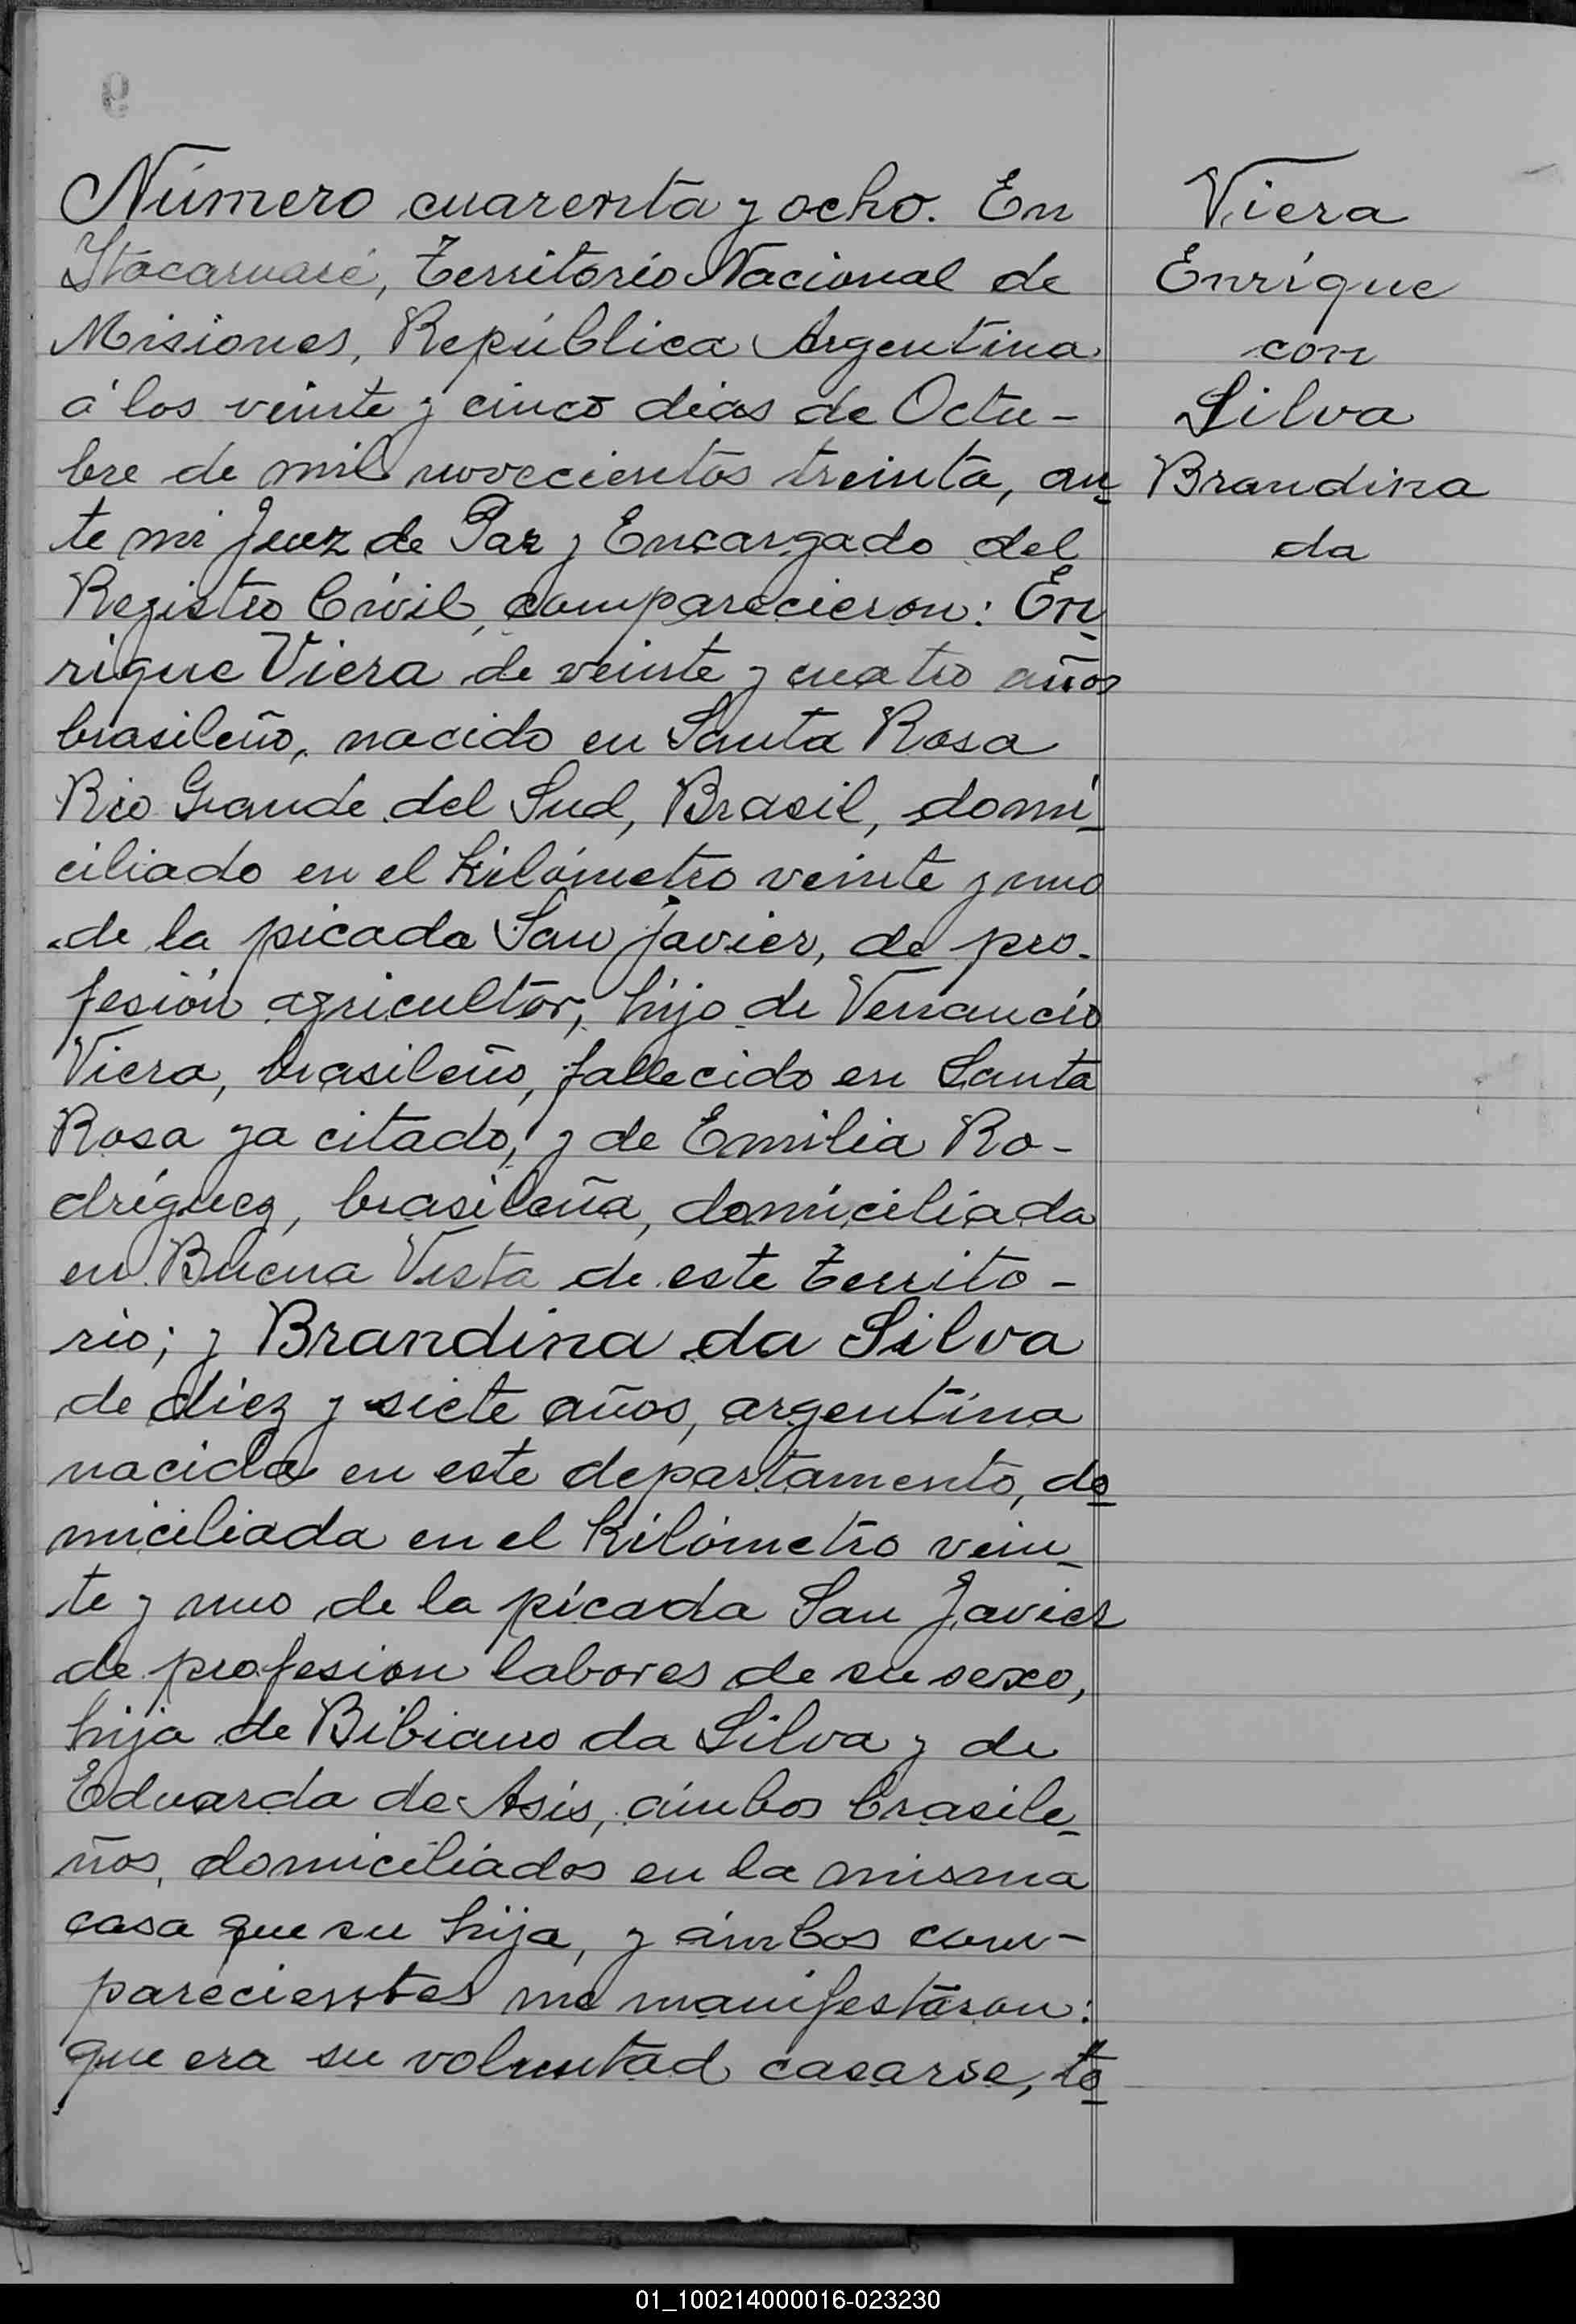 Número cuarenta y ocho. En
Itacaruaré, Territorio Nacional de
Misiones, República Argentina
á los veinte y cinco dias de Octu-
bre de mil novecientos treinta, an-
te mi Juez de Paz y Encargado del
Registro Civil, comparecieron: En-
rique Viera de veinte y cuatro años
brasileño, nacido en Santa Rosa
Rio Grande del Sud, Brasil, domi-
ciliado en el Kilómetro veinte y uno
de la picada San Javier, de pro-
fesión agricultor, hijo de Venancio
Viera, brasileño, fallecido en Santa
Rosa ya citado, y de Emilia Ro-
dríguez, brasileña, domiciliada
en Buena Vista de este Territo-
rio; y Brandina da Silva
de diez y siete años, argentina
nacida en este departamento, do-
miciliada en el Kilómetro vein-
te y uno de la picada San Javier
de profesion labores de su sexo,
hija de Bibiano da Silva y de
Eduarda de Asis, ámbos brasile-
ños, domiciliados en la misma
casa que su hija, y ámbos com-
parecientes me manifestaron:
que era su voluntad casarse, to-
Viera
Enrique
con
Silva
Brandina
da
9
01_100214000016-023230